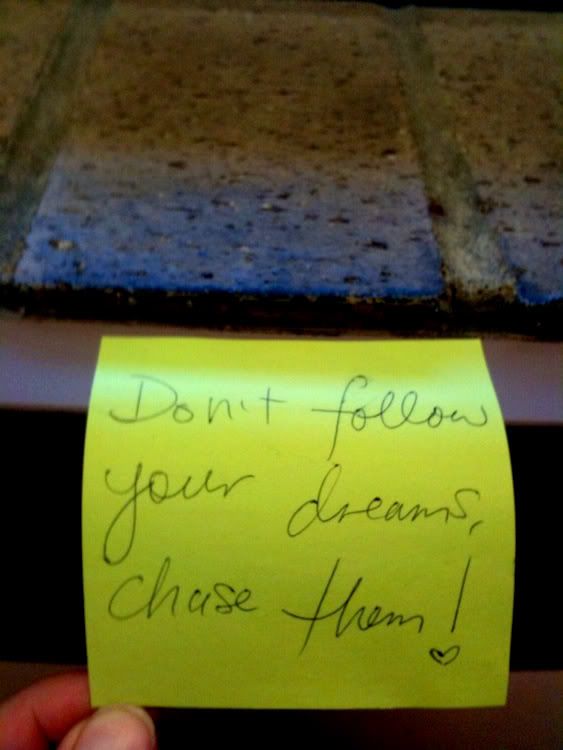 Don't follow
your dreams,
chase them!